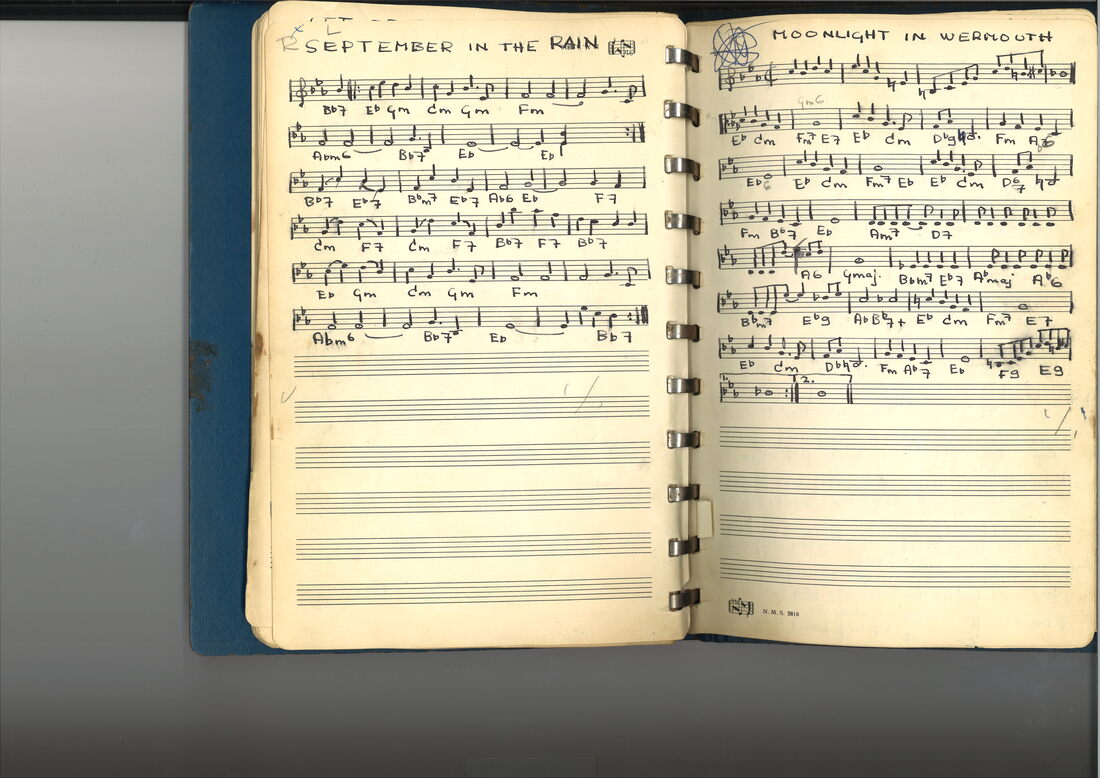 SEPTEMBER IN THE RAIN
Bb7 Eb Gm Cm Gm Fm
Abm6 Bb7 Eb Eb
Bb7 Eb7 Bbm7 Eb7 Ab6 Eb F7
Cm F7 Cm F7 Bb7 F7 Bb7
Eb Gm Cm Gm Fm
Abm6 Bb7 Eb Bb7
MOONLIGHT IN WERMOUTH
Gm6
Eb Cm Fm7 E7 Eb Cm Db9 Fm
Eb Eb Cm Fm7 Eb Eb Cm
Fm Bb7 Eb Am7 D7
A6 Gmaj. Bbm7 Eb7 Abmaj Ab6
Bbm7 Eb9 Ab Bb7+ Eb Cm Fm7 E7
Eb Cm Fm Ab7 Eb F9 E9
1. 2.
N. M. S. 3818